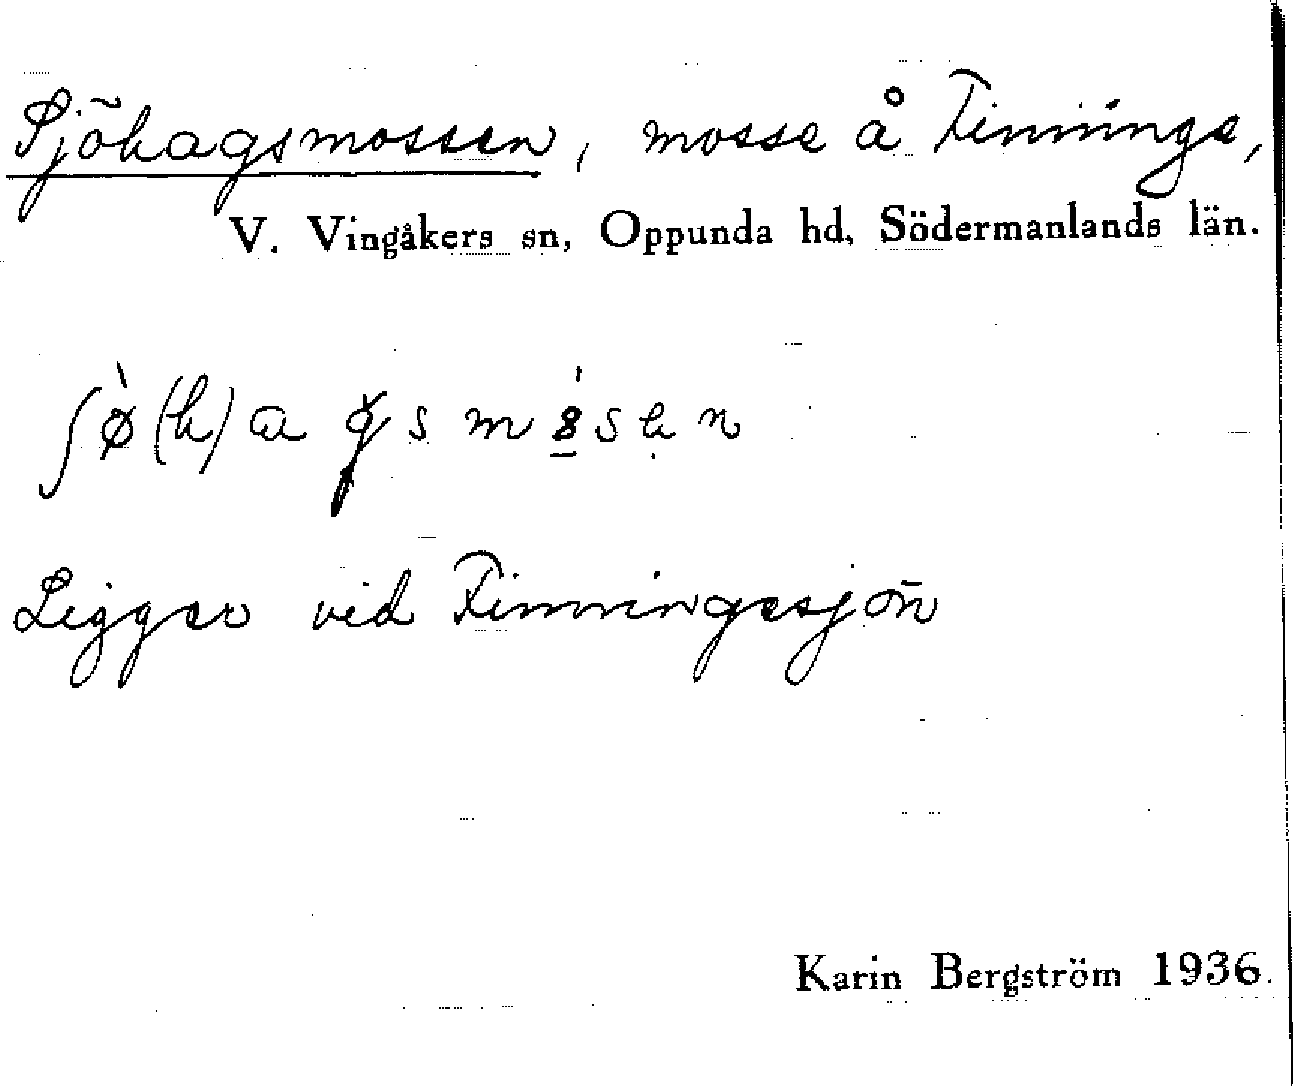 Sjöhagsmossen, mosse å Finninge,
V. Vingåkers sn, Oppunda hd, Södermanlands län.
Ligger vid Finningesjön
Karin Bergström 1936.